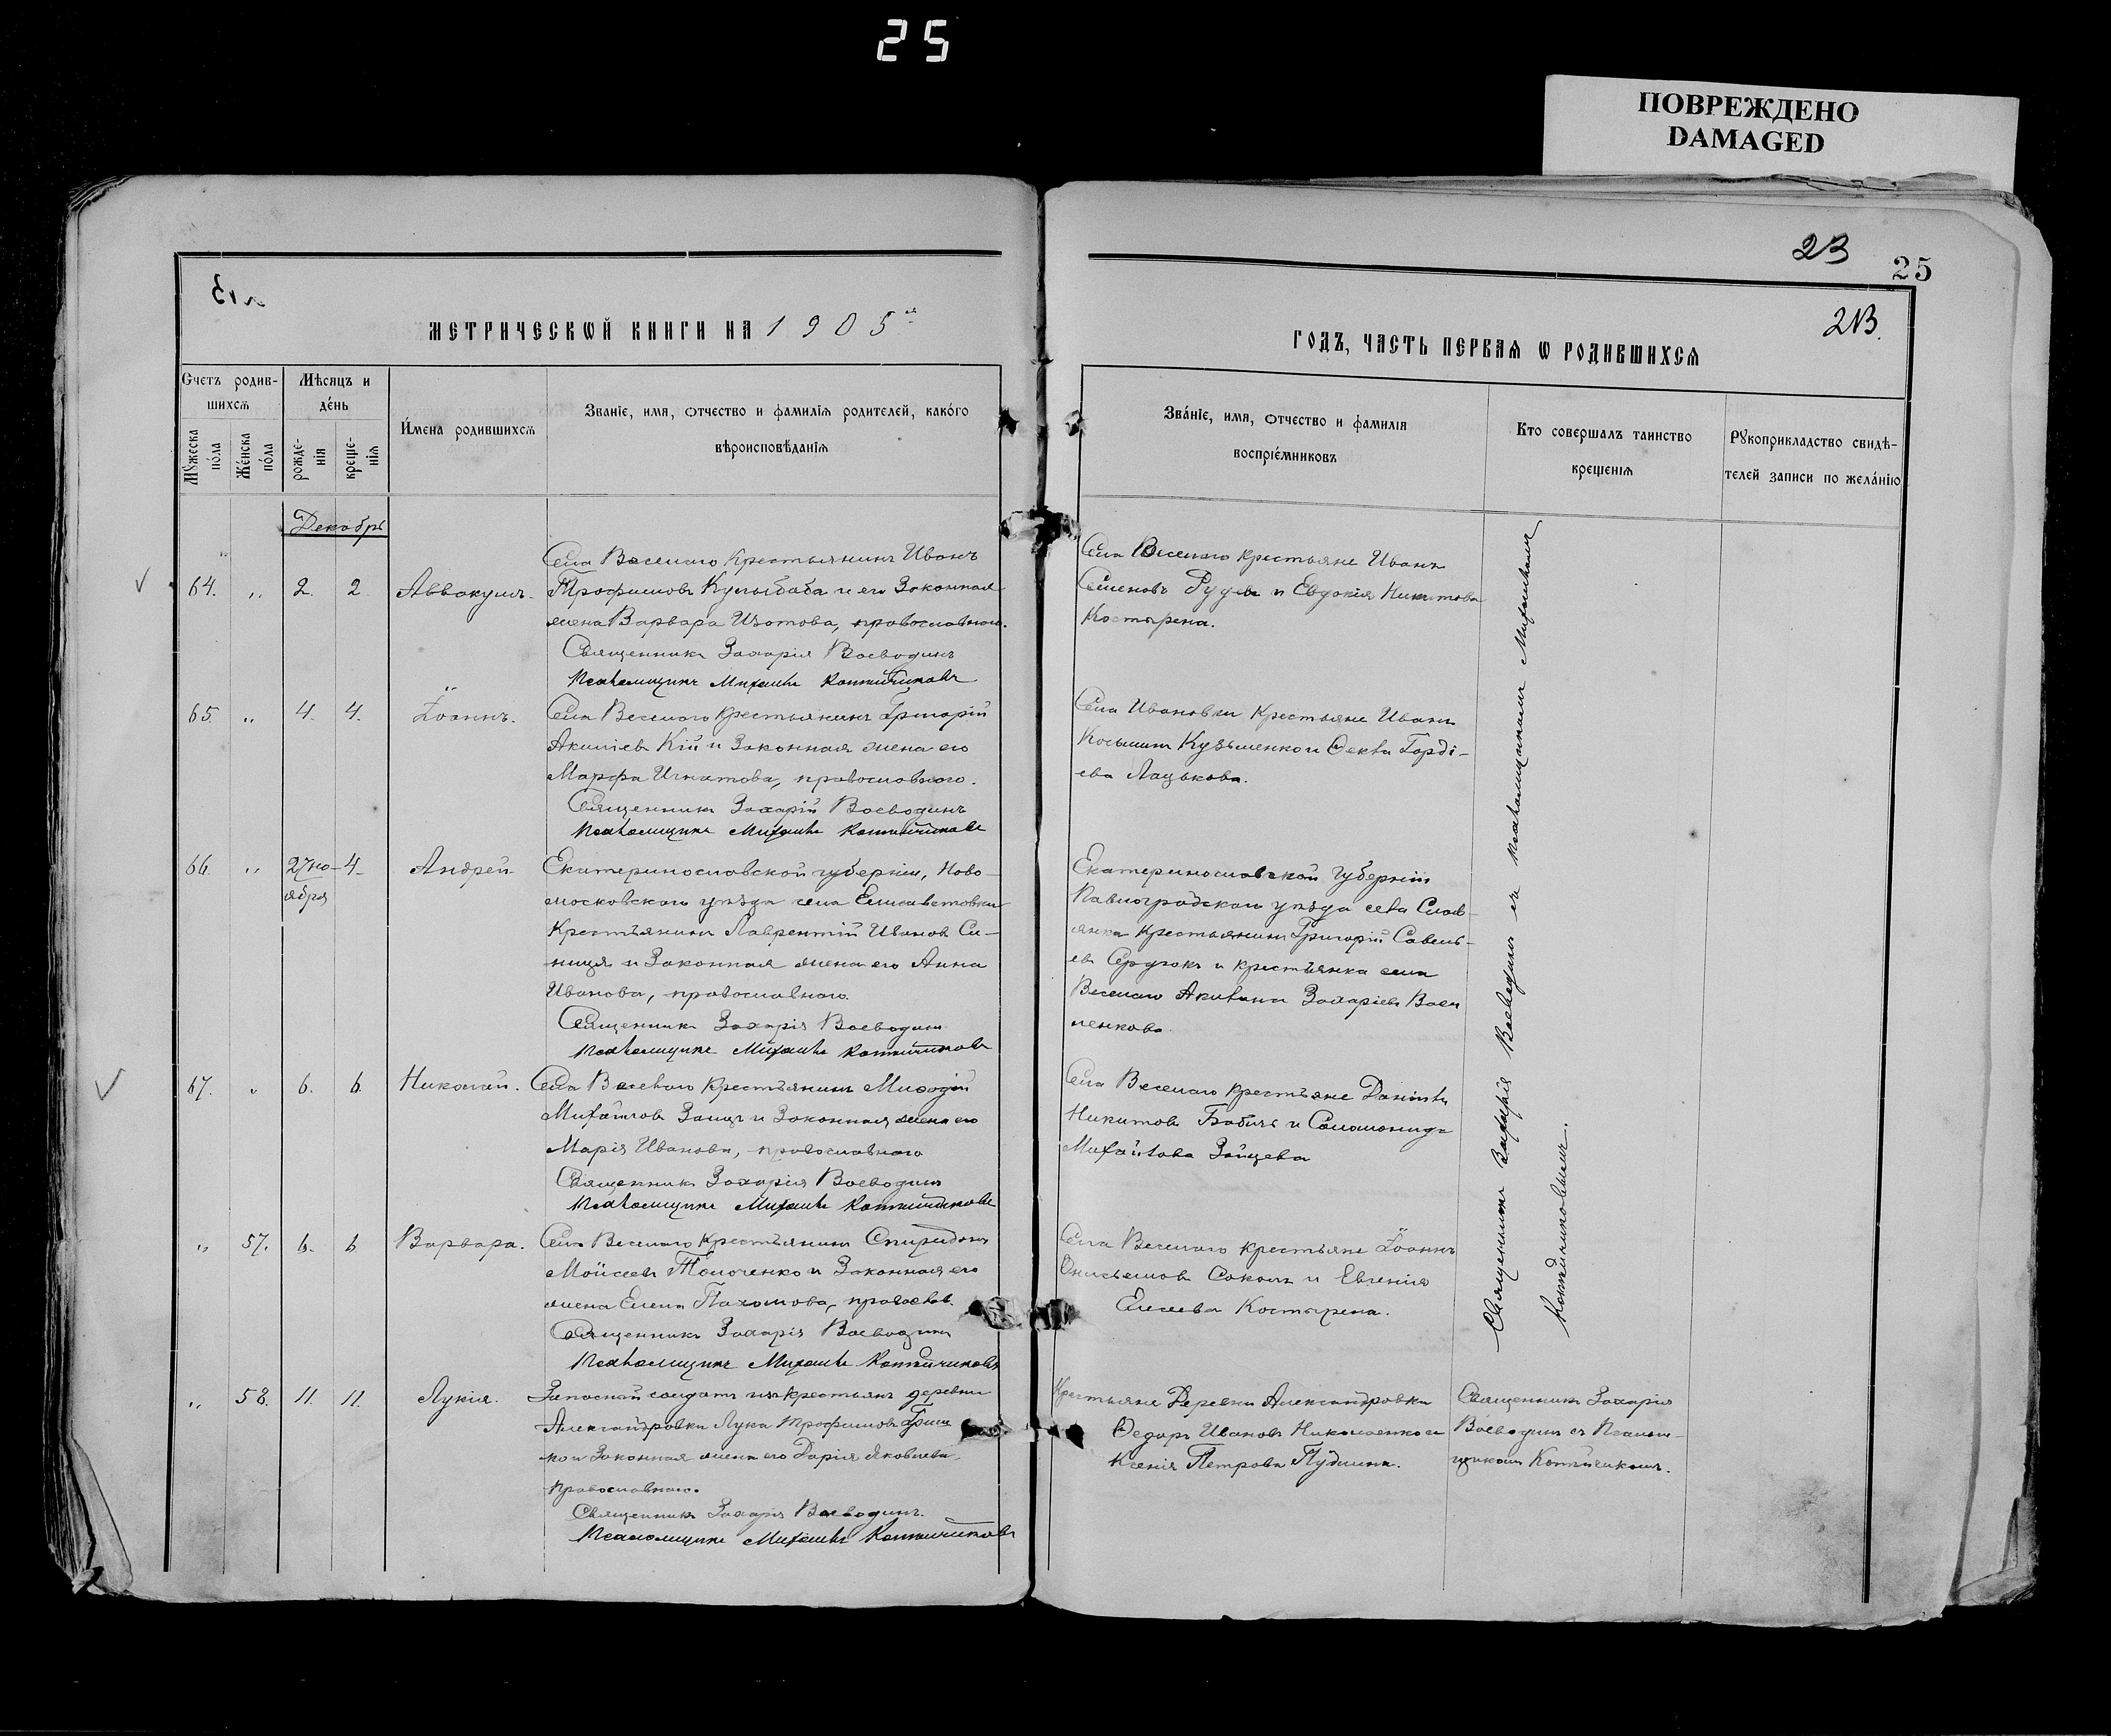 25
ПОВРЕЖДЕНО
DAMAGED
23
25
213.
МЕТРИЧЕСКѠЙ КНИГИ НА 1905
ГОДЪ, ЧАСТЬ ПЕРВАЯ Ѡ РОДИВШИХСЯ
Счетъ родив-
шихся
Мѣсяцъ и
де́нь
Мꙋжеска по́ла
Же́нска по́ла
рожде-
нія
креще-
нія
И́мена родившихся
Званіе, имя, отчество и фамилія родителей, како́го
вѣроисповѣ́данія
Зва́ніе, имя, отчество и фамилія
воспріе́мниковъ
Кто совершалъ таинство
крещенія
Рꙋкоприкладство свидѣ-
телей записи по жела́нію
Декабрь
64. „ 2. 2 Аввакумъ.
Села Веселаго Крестьянинъ Иванъ
Трофимовъ Кулыбаба и его Законная
жена Варвара Изотова, православнаго.
Священникъ Захарія Воеводинъ
Псаломщикъ Михаилъ
Села Веселаго крестьяне Иванъ
Семеновъ Рудь и Евдокія Никитова
Костырена.
65. „ 4. 4. Іоаннъ.
Села Веселаго Крестьянинъ Григорій
Акиліевъ Кій и Законная жена его
Марфа Игнатова, православнаго.
Священникъ Захарій Воеводинъ
Псаломщикъ Михаилъ
Села Ивановки Крестьяне Иванъ
Косьминъ Кузьменко и Ѳекла Горді-
ева Лацькова.
66. „ 27 но-
ября 4. Андрей
Екатеринославской губерніи, Ново-
московскаго уѣзда села Елисаветовки
Крестьянинъ Лаврентій Ивановъ Си-
ница и Законная жена его Анна
Иванова, православнаго.
Священникъ Захарія Воеводинъ
Псаломщикъ Михаилъ
Екатеринославской Губерніи
Павлоградскаго уѣзда села Слав-
янка Крестьянинъ Григорій Савель-
евъ Сердюкъ и крестьянка села
Веселаго Акилина Захаріева
67. „ 6. 6. Николай.
Села Веселаго Крестьянинъ Меѳодій
Михайловъ Заяцъ и Законная жена его
Марія Иванова, православнаго
Священникъ Захарія Воеводинъ
Псаломщикъ Михаилъ
Села Веселаго крестьяне Даніилъ
Никитовъ Бабичъ и Саломонида
Михайлова Зайцева
„ 57. 6. 6 Варвара.
Села Веселаго Крестьянинъ Спиридонъ
Мойсеевъ Толоченко и Законная его
жена Елена Пахомова, правосл.
Священникъ Захарія Воеводинъ
Псаломщикъ Михаилъ
Села Веселаго крестьяне Іоаннъ
Онисьемовъ Соколъ и Евгенія
Елисеева Костырена.
„ 58. 11. 11. Лукія.
Запасный солдатъ изъ крестьянъ деревни
Александровки Лука Трофимовъ Гриш
ко и Законная жена его Дарія Яковлева
православнаго.
Священникъ Захарія Воеводинъ.
Псаломщикъ Михаилъ
Крестьяне Деревни Александровки
Ѳедоръ Ивановъ Николаенко и
Ксенія Петрова
Священникъ Захарія
Воеводинъ съ Псалом-
щикомъ
Священникъ Захарія Воеводинъ съ псаломщикомъ Михаиломъ